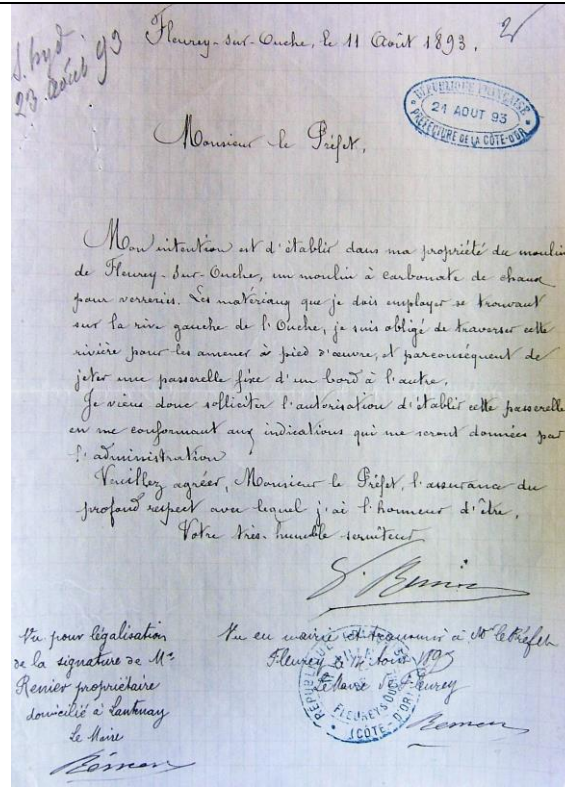 S. hyd.
23 août 93
Fleurey-sur-Ouche, le 11 Août 1893.
2
RÉPUBLIQUE FRANÇAISE
21 AOUT 93
PRÉFECTURE DE LA CÔTE-D'OR
Monsieur le Préfet,
Mon intention est d'établir dans ma propriété du moulin
de Fleurey-sur-Ouche, un moulin à carbonate de chaux
pour verreries. Les matériaux que je dois employer se trouvant
sur la rive gauche de l'Ouche, je suis obligé de traverser cette
rivière pour les amener à pied d'œuvre, et parconséquent de
jeter une passerelle fixe d'un bord à l'autre.
Je viens donc solliciter l'autorisation d'établir cette passerelle
en me conformant aux indications qui me seront données par
l'administration
Veuillez agréer, Monsieur le Préfet, l'assurance du
profond respect avec lequel j'ai l'honneur d'être,
Votre très-humble serviteur
Renier
Vu pour légalisation
de la signature de Mr
Renier propriétaire
domicilié à Lantenay
Le Maire
Vu en mairie et transmis à Mr le Préfet
Fleurey le Août 1893
Le Maire de Fleurey
FLEUREY S OUCHE
(CÔTE-D'OR)